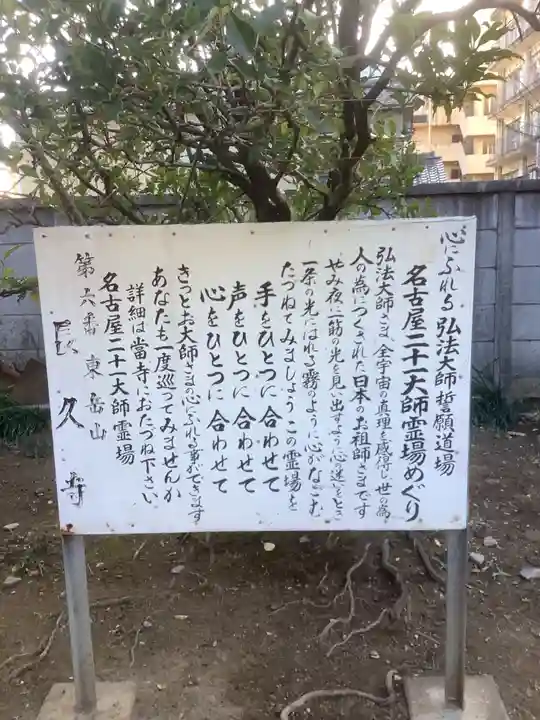 心にふれる 弘法大師誓願道場
名古屋二十一大師霊場めぐり
弘法大師さま 全宇宙の真理を感得し 世の為
人の為につくされた日本のお祖師さまです
やみ夜に一筋の光を見い出すよう心の迷いをとき
一条の光にはれる霧のように心がなごむ
たづねてみましょう この霊場を
手をひとつに 合わせて
声をひとつに 合わせて
心をひとつに 合わせて
きっとお大師さまの心にふれる事ができます
あなたも一度巡ってみませんか
詳細は當寺におたづね下さい
名古屋二十一大師霊場
第六番 東岳山
長久寺